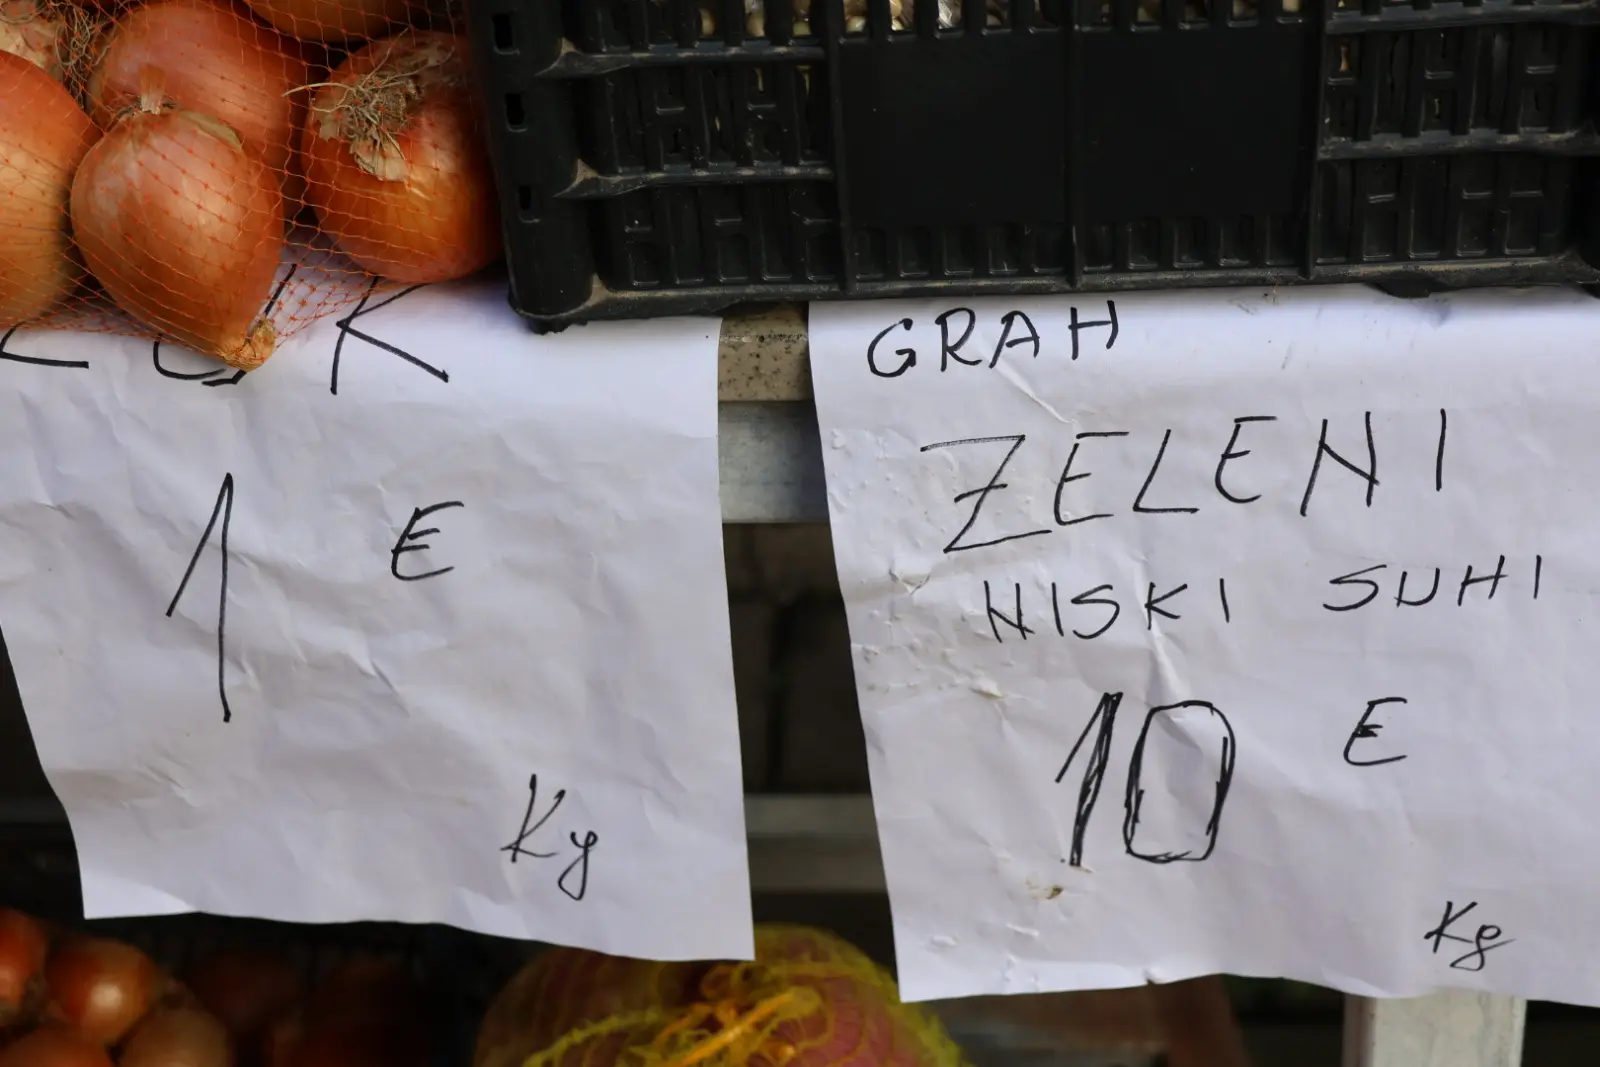 LUK
1 E
Kg
GRAH
ZELENI
NISKI SUHI
10 E
Kg